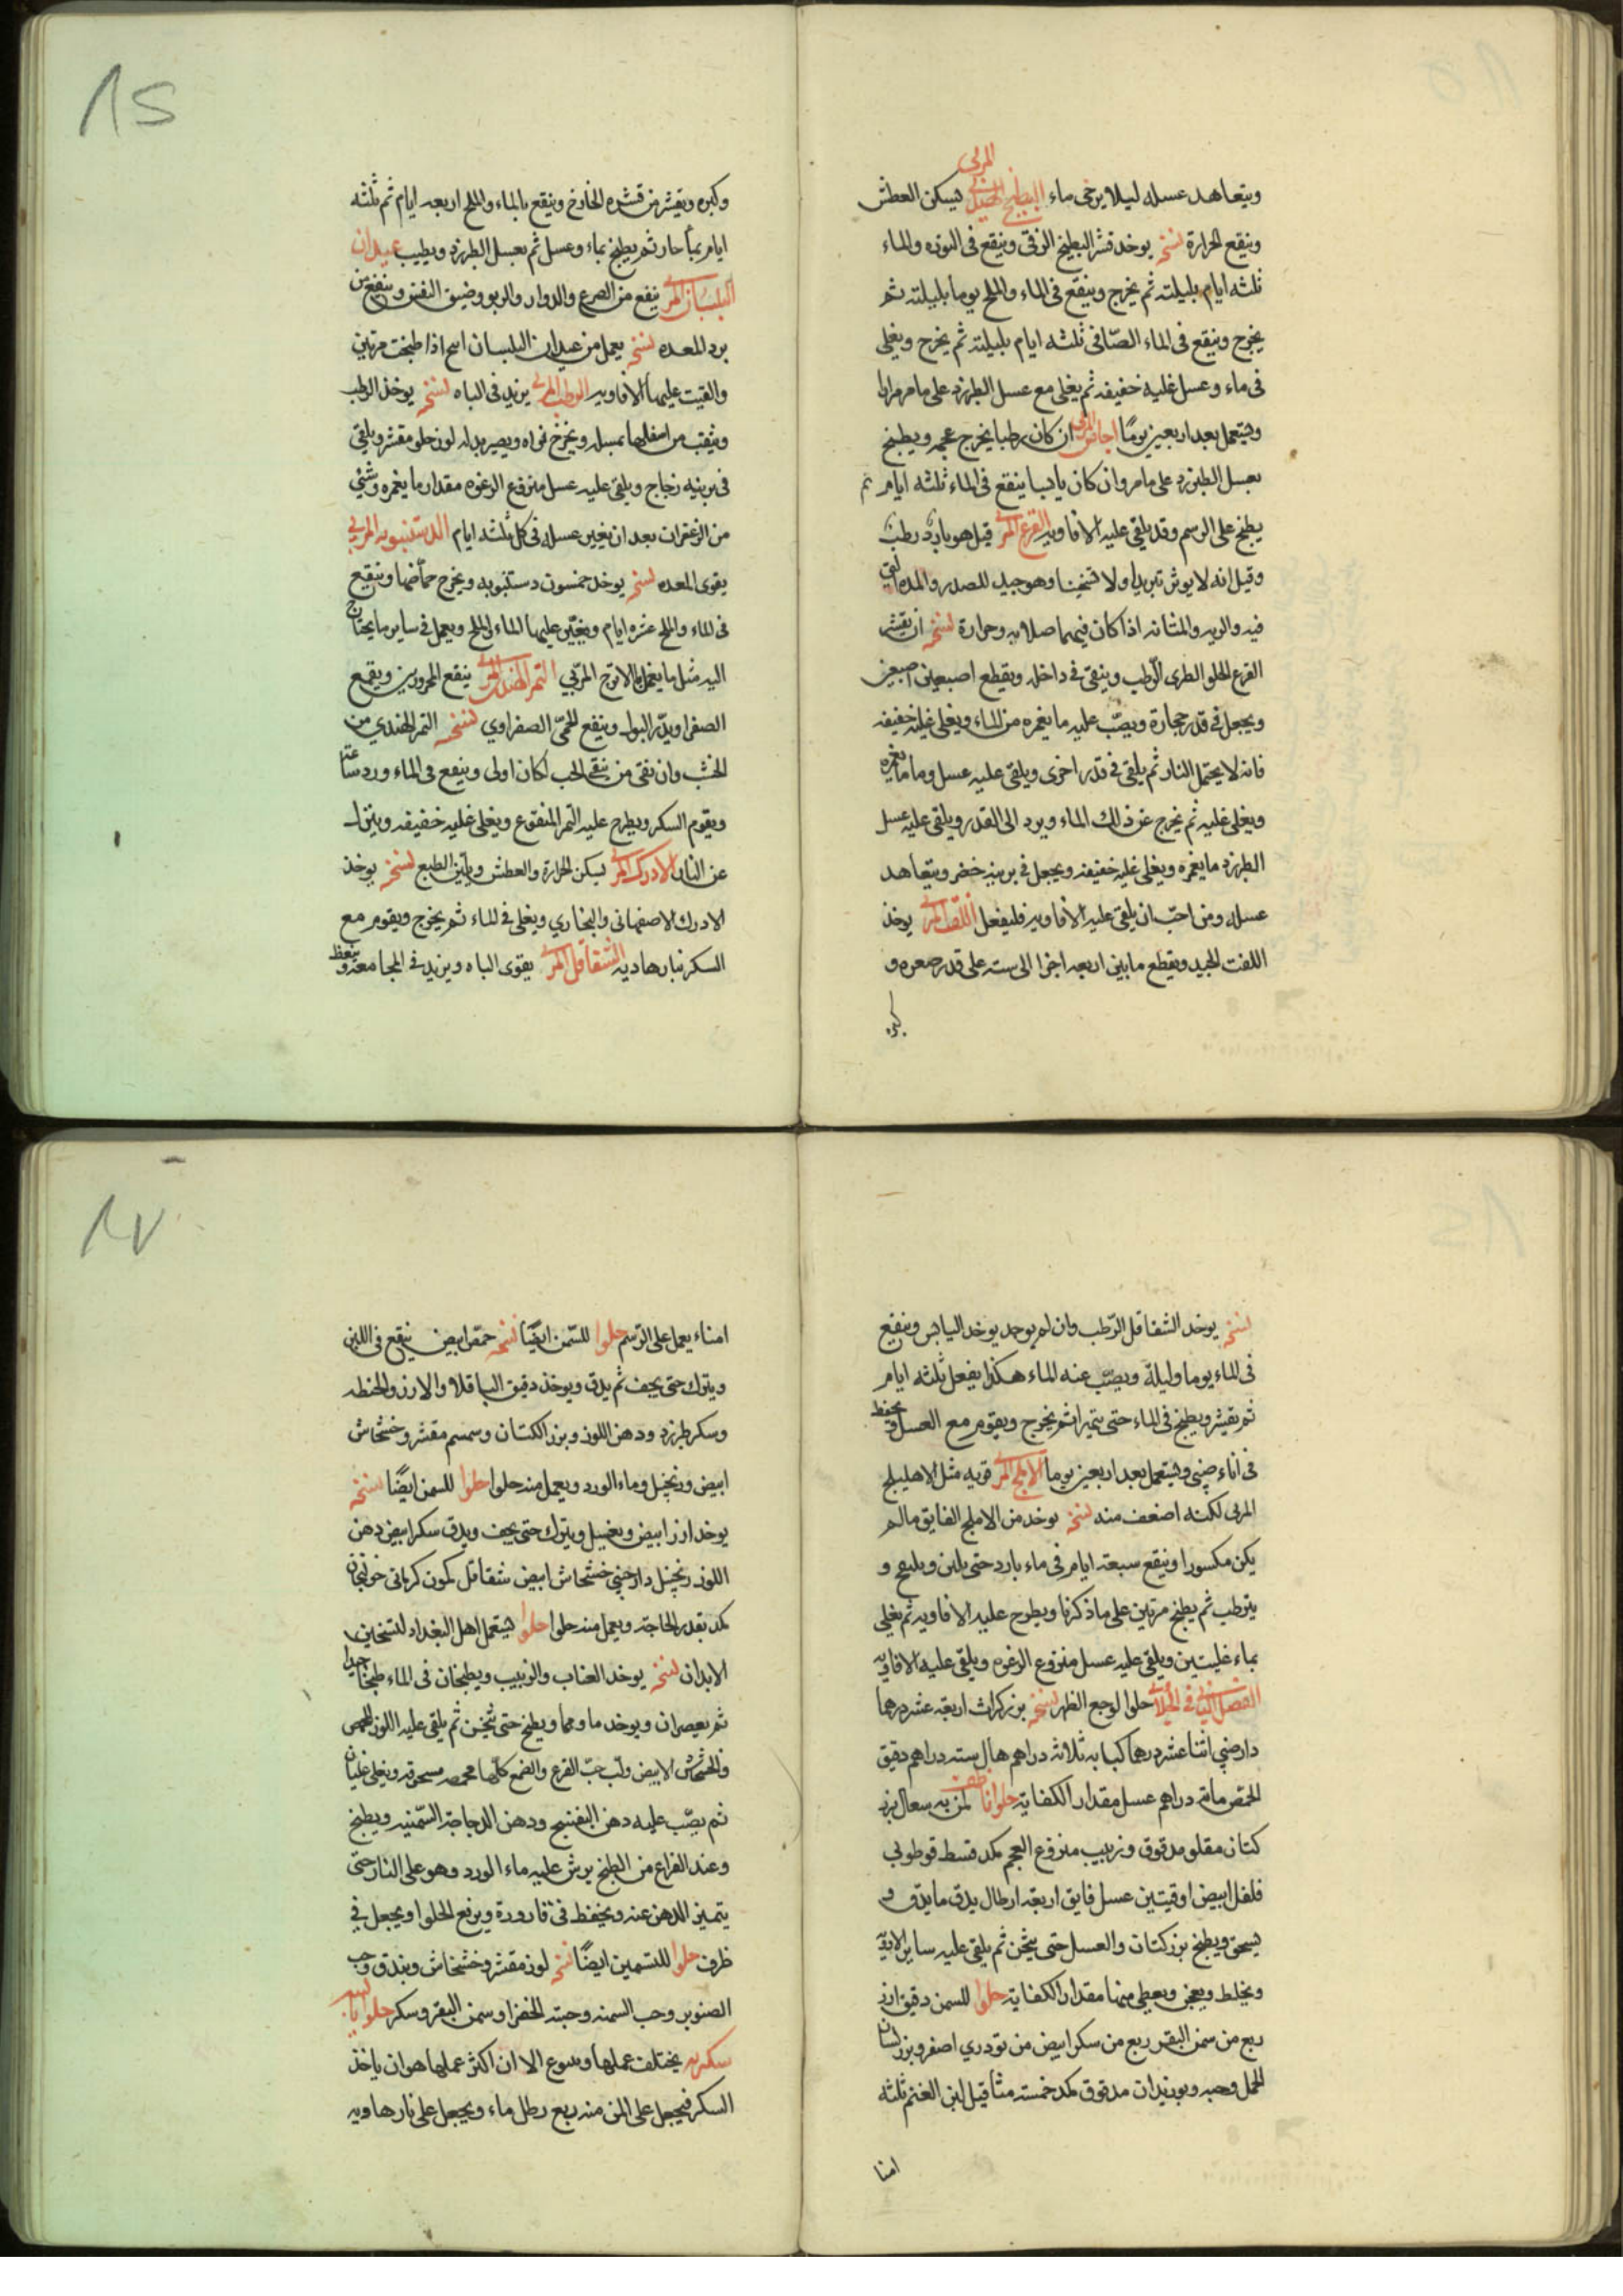 المربي
ويتعاهد عسله ليلا يرخى ماء البطيخ الهندى يسكن العطش
وينقع الحرارة نسخه يوخد قشر البطيخ الرقى وينقع فى النوره والماء
ثلثه ايام بليلته ثم يخرج وينقع فى الماء والملح يوما بليلته ثم
يخرج وينقع فى الماء الصافى ثلثه ايام بليلته ثم يخرج ويغلى
فى ماء وعسل غليه خفيفه ثم يغلى مع عسل الطبرزد على ما مر مرارا
ويستعمل بعد اربعين يومًا اجاص المربى ان كان رطبا يخرج عجمه ويطبخ
بعسل الطبرزد على ما مر وان كان يابسا ينقع فى الماء ثلثه ايام ثم
يطبخ على الرسم وقد يلقى عليه الافاويه القرع المربى قيل هو بارد رطب
وقيل انه لا يوثر تبريدا ولا تسخينا وهو جيد للصدر والمده التى
فيه والريه والمثانه اذا كان فيهما صلابه وحرارة نسخه ان يقشر
القرع الحلو الطرى الرطب وينقى فى داخله ويقطع اصبعين اصبعين
ويجعل فى قدر حجارة ويصب عليه ما يغمره من الماء ويغلى غليه خفيفه
فانه لا يحتمل النار ثم يلقى فى قدر اخرى ويلقى عليه عسل وما ما يغمره
ويغلى غليه ثم يخرج عن ذلك الماء ويرد الى القدر ويلقى عليه عسل
الطبرزد ما يغمره ويغلى غليه خفيفه ويجعل فى برنيه خضر ويتعاهد
عسله ومن احب ان يلقى عليه الافاويه فليفعل اللفت المربى يوخذ
اللفت الجيد ويقطع ما بين اربعه اجزا الى سته على قدر صغره و
كبره
وكبره ويقشر من قشره الخارج وينقع بالماء والملح اربعه ايام ثم ثلثه
ايام بماء حار ثم يطبخ بماء وعسل ثم بعسل الطبرزد ويطيب عيدان
البلسان المربى ينفع من الصرع والدوار والربو وضيق النفس وينفع من
برد المعده نسخه يعمل من عيدان البلسان اسح اذا طبخت مرتين
والقيت عليها الافاويه الرطب المربى يزيد فى الباه نسخه يوخذ الرطب
ويثقب من اسفلها بمسله ويخرج نواه ويصير بدله لوز حلو مقشر ويلقى
فى برنيه زجاج ويلقى عليه عسل منزوع الرغوه مقدار ما يغمره وشئ
من الزعفران بعد ان يغير عسله فى كل ثلثه ايام الدستنبويه المربى
يقوى المعده نسخه يوخد خمسون دستنبويه ويخرج حماضها وينقع
فى الماء والملح عشره ايام ويغير عليها الماء والملح ويعمل فى ساير ما يحتاج
اليه مثل ما يعمل بالاترج المربي التمر الهندى المربى ينفع المحرورين ويقمع
الصفرا ويدر البول وينفع للحمى الصفراوي نسخه التمر الهندي من
الخشب وان نقى من الحب لكان اولى وينقع فى الماء ورد ساعة
ويقوم السكر ويطرح عليه التمر المنقوع ويغلى غليه خفيفه وينزل
عن النار الادرك المربى يسكن الحرارة والعطش ويلين الطبع نسخه يوخذ
الادرك الاصفهانى والبخاري ويغلى فى الماء ثم يخرج ويقوم مع
السكر بنار هاديه الشقاقل المربى يقوى الباه ويزيد فى المجامعه وينعظ
نسخه يوخد الشقاقل الرطب وان لم يوجد يوخد اليابس وينقع
فى الماء يوما وليلة ويصب عنه الماء هكذا يفعل ثلثه ايام
ثم يقشر ويطبخ فى الماء حتى يتهرا ثم يخرج ويقوم مع العسل ويحفظ
فى اناء صينى ويستعمل بعد اربعين يوما الاملج المربى قويه مثل الاهليلج
المربى لكنه اضعف منه نسخه يوخد من الاملج الفايق ما لم
يكن مكسورا وينقع سبعة ايام فى ماء بارد حتى يلين و
يترطب ثم يطبخ مرتين على ما ذكرنا ويطرح عليه الافاويه ثم يغلى
بماء غليتين ويلقى عليه عسل منزوع الرغوه ويلقى عليه الافاويه
الفصل الثانى فى الحلاوى حلوا لوجع الظهر نسخه بزر كراث اربعة عشر درهما
دارصينى اثنا عشر درهما كبابه ثلاثه دراهم هال سته دراهم دقيق
الحمص مائة دراهم عسل مقدار الكفاية حلوا نافعه لمن به سعال بزر
كتان مقلو مدقوق وزبيب منزوع العجم مكد قسط قوطولى
فلفل ابيض اوقيتين عسل فايق اربعه ارطال يدق ما يدق و
يسحق ويطبخ بزر كتان والعسل حتى يثخن ثم يلقى عليه ساير الادويه
ويخلط ويعجن ويعطى منها مقدار الكفاية حلوا للسمن دقيق ارز
ربع من سمن البقر ربع من سكر ابيض من تودري اصفر وبزر لسان
الحمل وحبه وبوزيدان مدقوق مكد خمسه مثاقيل لبن الغنم ثلثه
امنا
امناء يعمل على الرسم حلوا للسمن ايضًا نسخه حمص ابيض ينقع فى اللبن
ويترك حتى يجف ثم يدق ويوخذ دقيق الباقلا والارز والحنطه
وسكر طبرزد ودهن اللوز وبزر الكتان وسمسم مقشر وخشخاش
ابيض وزنجبيل وماء الورد ويعمل منه حلوا حلوا للسمن ايضًا نسخه
يوخد ارز ابيض ويغسل ويترك حتى يجف ويدق سكر ابيض دهن
اللوز زنجبيل دارصينى خشخاش ابيض شقاقل كمون كرمانى خولنجان
مكد بقدر الحاجة ويعمل منه حلوا حلوا يستعمل اهل البغداد لتسخين
الابدان نسخه يوخد العناب والزبيب ويطبخان فى الماء طبخا جيدا
ثم يعصران ويوخد ماوهما ويطبخ حتى يثخن ثم يلقى عليه اللوز المحمص
والخشخاش الابيض ولب حب القرع والصمغ كلها محمصه مسحوقه ويغلى غليان
ثم يصب عليه دهن البنفسج ودهن الدجاجة السمينه ويطبخ
وعند الفراغ من الطبخ يرش عليه ماء الورد وهو على النار حتى
يتميز الدهن عنه ويحفظ فى قارورة ويرفع الحلوا ويجعل فى
ظرف حلوا للتسمين ايضًا نسخه لوز مقشر وخشخاش وبندق وحب
الصنوبر وحب السمنه وحبته الخضرا وسمن البقر وسكر حلوا
سكريه يختلف عملها الا ان اكثر عملها هو ان ياخذ
السكر فيجعل على المن منه ربع رطل ماء ويجعل على نار هاديه